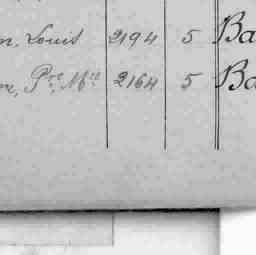 n, Louis 2194 5 Ba
re, Pre. Mie 2164 5 Ba